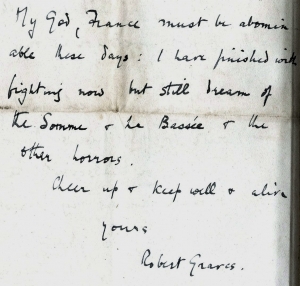 My God, France must be abomin
able these days: I have finished with
fighting now but still dream of
the Somme & La Bassée & the
other horrors.
Cheer up & keep well & alive
yours
Robert Graves.